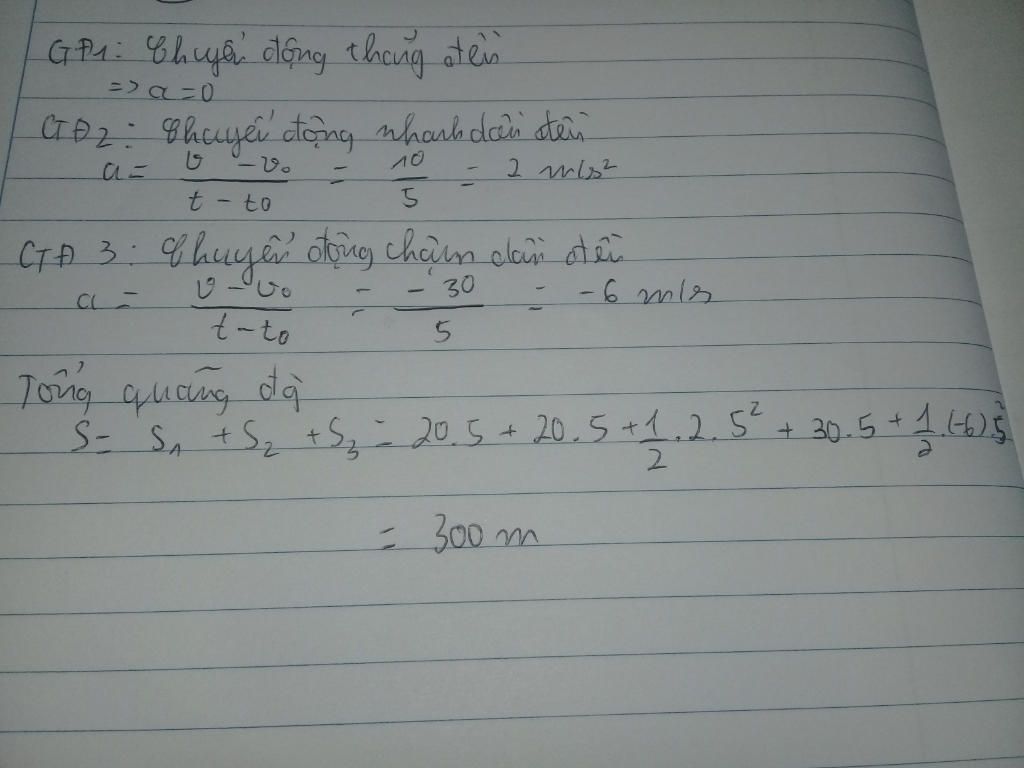 GĐ1: Chuyển động thẳng đều
=> a = 0
GĐ2: Chuyển động nhanh dần đều
a = v - v₀ / t - t₀ = 10 / 5 = 2 m/s²
GĐ 3: Chuyển động chậm dần đều
a = v - v₀ / t - t₀ = - 30 / 5 = -6 m/s
Tổng quãng đg
S = S₁ + S₂ + S₃ = 20.5 + 20.5 + 1/2 .2.5² + 30.5 + 1/2 .(-6).5²
= 300 m